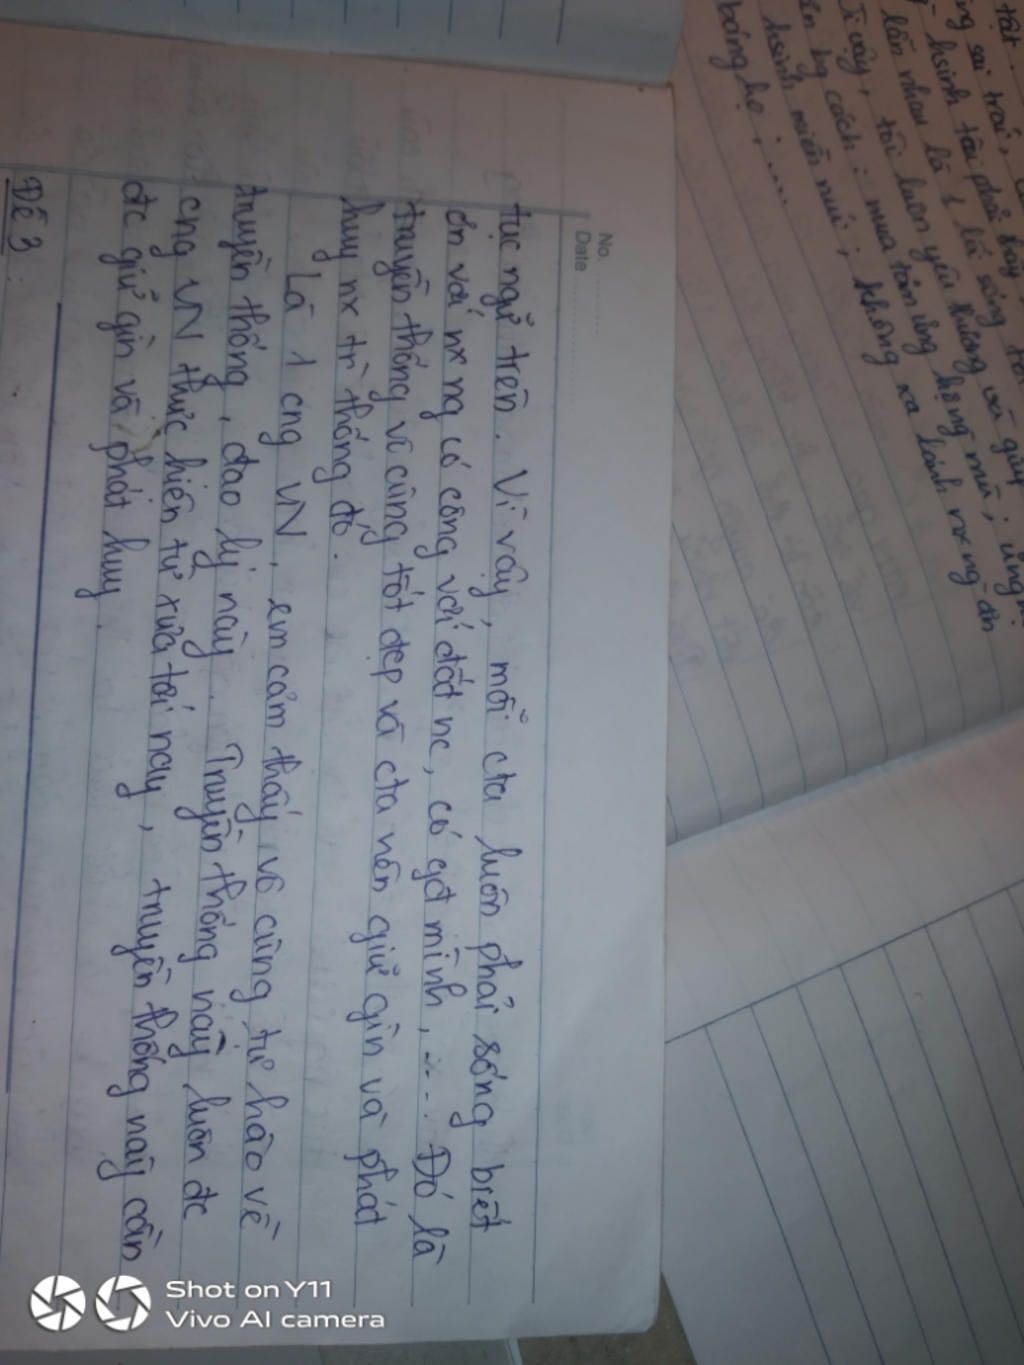 No. ............
Date ............
tục ngữ trên. Vì vậy, mỗi cta luôn phải sống biết
ơn với nx ng có công với đất nc, có gđ mình, .... Đó là
truyền thống vô cùng tốt đẹp và cta nên giữ gìn và phát
huy nx tr` thống đó.
Là 1 cng VN, em cảm thấy vô cùng tự hào về
truyền thống, đạo lý này. Truyền thống này luôn đc
cng VN thực hiện từ xưa tới nay, truyền thống này cần
đc giữ gìn và phát huy.
Đề 3:
tật.
sai trái,
hsinh tôi phải hay
lẫn nhau là 1 lẽ sống
Vì vậy, tôi luôn yêu thương và giúp
bg cách: mua tăm ủng hộ ng mù; ủng
hsinh miền núi; không xa lánh nx ng ăn
báng họ; ....
Shot on Y11
Vivo AI camera